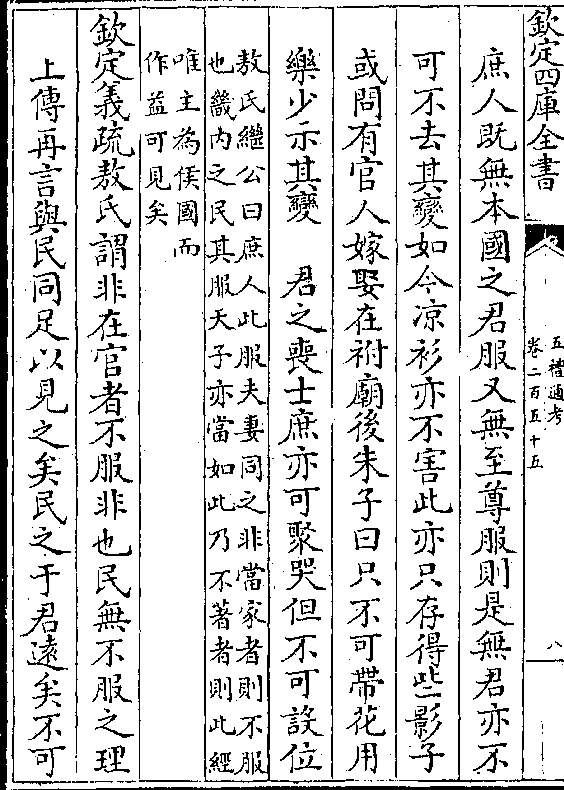 欽定四庫全書
五禮通考
卷二百五十五
八
庶人既無本國之君服又無至尊服則是無君亦不
可不去其變如今凉衫亦不害此亦只存得些影子
或問有官人嫁娶在祔廟後朱子曰只不可帶花用
樂少示其變　君之喪士庶亦可聚哭但不可設位
敖氏繼公曰庶人此服夫妻同之非當家者則不服
也畿内之民其服天子亦當如此乃不著者則此經
唯主為侯國而
作益可見矣
欽定義疏敖氏謂非在官者不服非也民無不服之理
上傳再言與民同足以見之矣民之于君遠矣不可